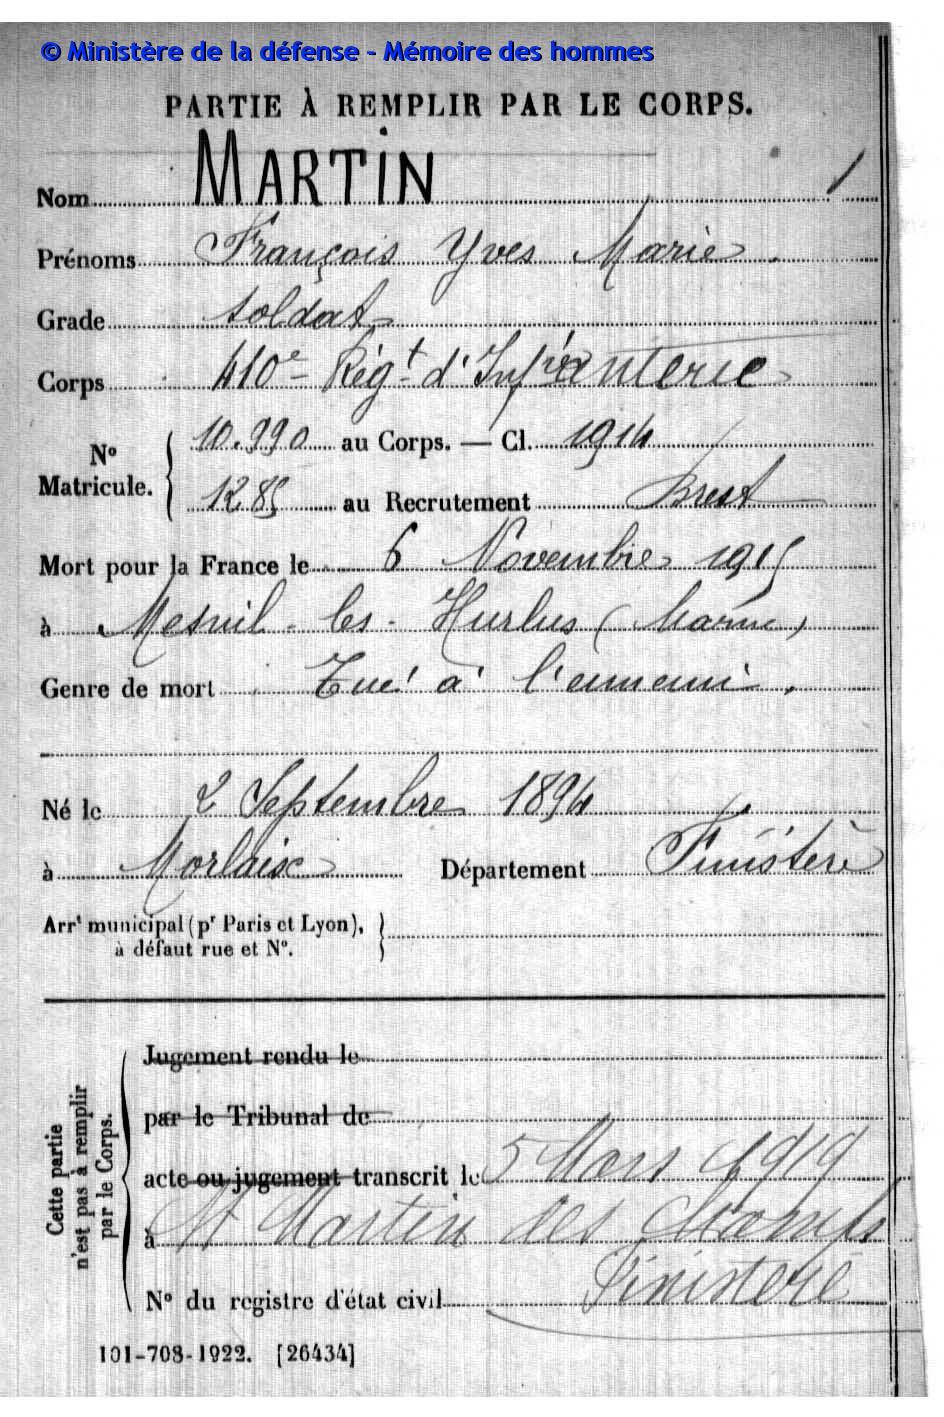 © Ministère de la défense - Mémoire des hommes
PARTIE À REMPLIR PAR LE CORPS.
Nom MARTIN
Prénoms François Yves Marie.
Grade Soldat
Corps 410e Régt d'Infanterie
No Matricule. 10.990 au Corps. — Cl. 1914
1285 au Recrutement Brest
Mort pour la France le 6 Novembre 1915
à Mesnil-les-Hurlus (Marne)
Genre de mort Tué à l'ennemi.
Né le 2 Septembre 1894
à Morlaix Département Finistère
Arrt municipal (pr Paris et Lyon),
à défaut rue et No.
Cette partie
n'est pas à remplir
par le Corps.
Jugement rendu le
par le Tribunal de
acte ou jugement transcrit le 5 Mars 1919
à St Martin des Champs
Finistère
No du registre d'état civil
101-708-1922. [26434]